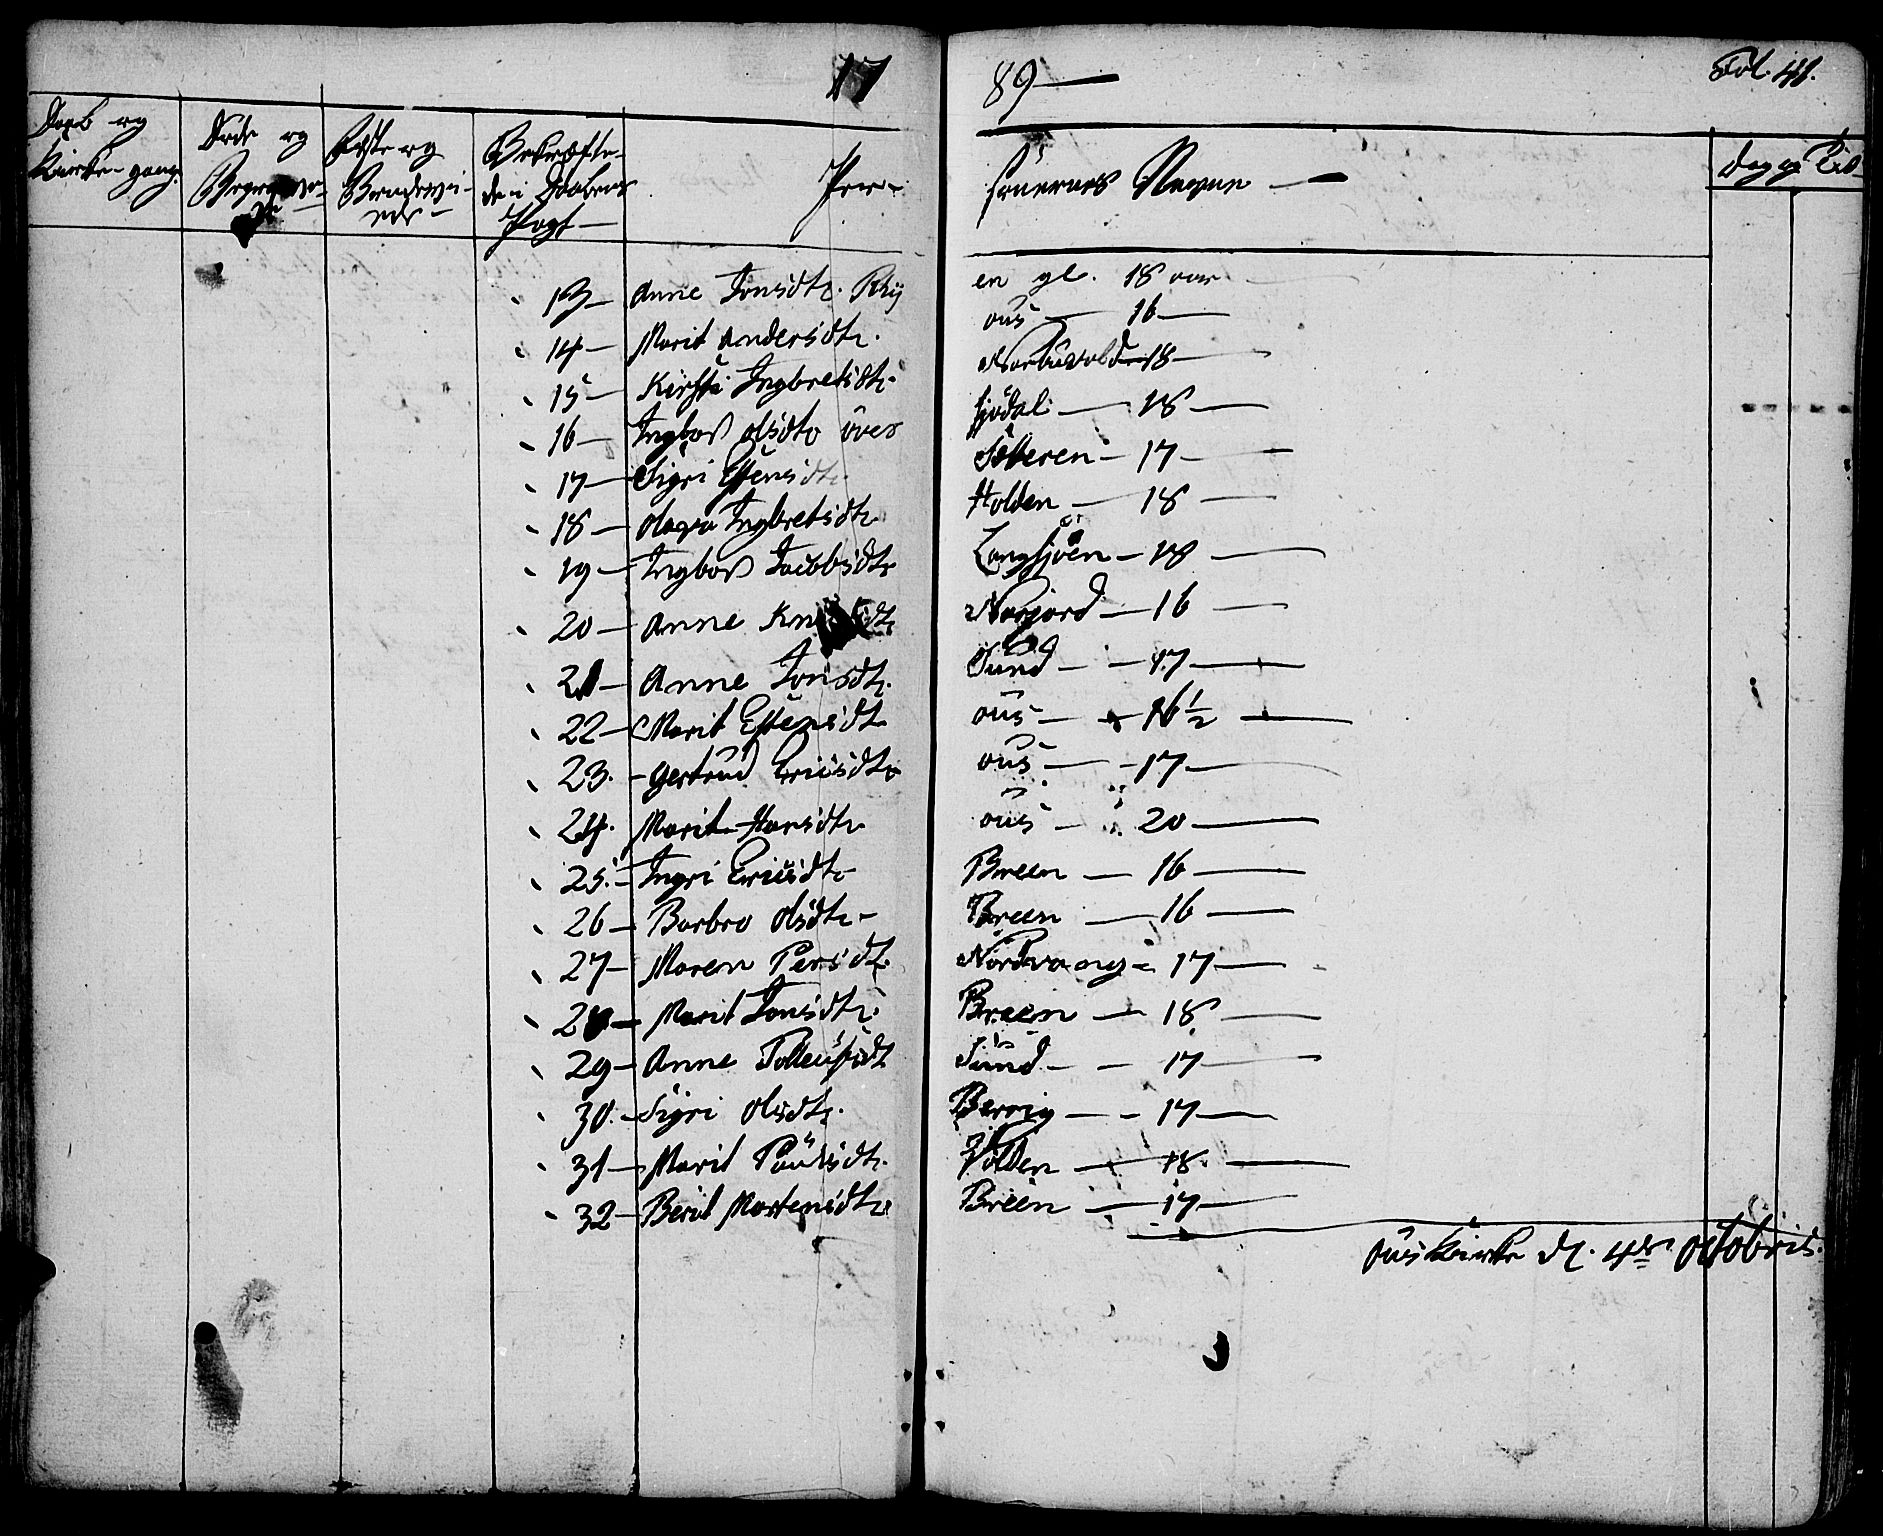 1789 — Fol. 41.
Daab og Kirke-gang. Døde og Begravede Fæste og Bekræftede i Daabens Pagt — Per- sonernes Navne — Dag og Tid
13 — Anne Jonsdtr. Rhy en gl. 18 aar
14 — Marit Andersdtr. ous — 16 —
15 — Kirsti Ingbretsdtr. 18 —
16 — Ingbor Olsdtr over sjødal — 18 —
17 — Sigri Estensdtr. — 17 —
18 — Ingbretsdtr. Holden — 18 —
19 — Ingbor Jacobsdtr Langsjøen — 18 —
20 — Anne Norjord — 16 —
21 — Anne Jonsdtr. Sund — 17 —
22 — Marit Estensdtr ous — 16½ —
23. — Gertrud Ericsdtr ous — 17 —
24. Marit Hansdtr. ous — 20 —
25. — Ingri Ericsdtr Breen — 16 —
26 — Barbro Olsdtr — Breen — 16 —
27 — Maren Persdtr. Nordvang — 17 —
28 — Marit Jonsdtr. Breen — 18 —
29 — Anne Sund — 17 —
30. — Sigri Olsdtr. Berrig — 17 —
31 — Marit Paulsdtr. Volden — 18 —
32 — Berit Mortensdtr. Breen — 17 —
Ous Kirke d. 4de Octobris.